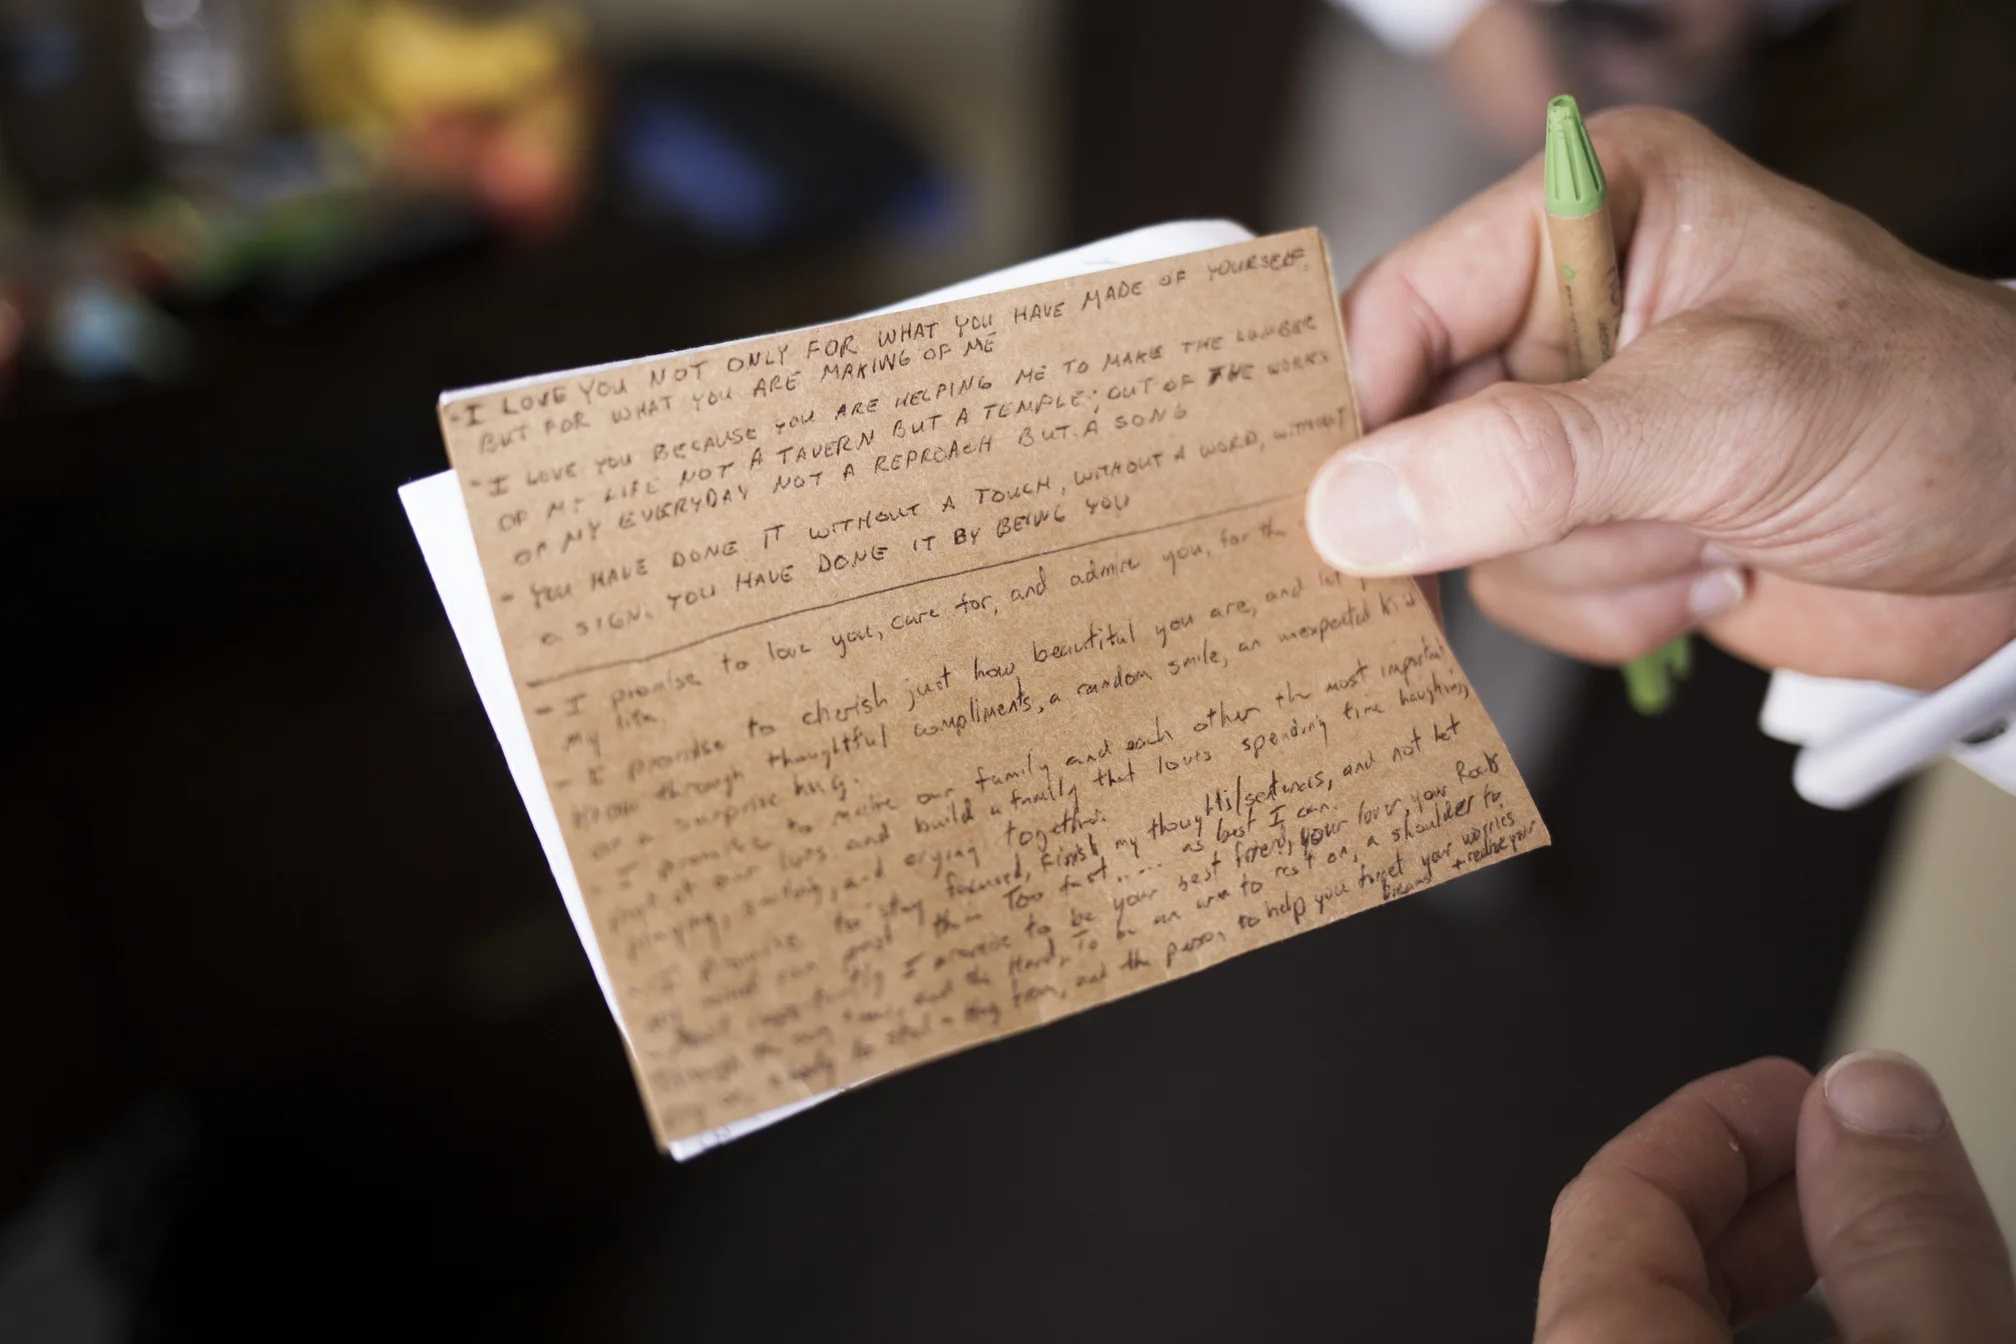 - I LOVE YOU NOT ONLY FOR WHAT YOU HAVE MADE OF YOURSELF,
BUT FOR WHAT YOU ARE MAKING OF ME
- I LOVE YOU BECAUSE YOU ARE HELPING ME TO MAKE THE LUMBER
OF MY LIFE NOT A TAVERN BUT A TEMPLE; OUT OF THE WORKS
OF MY EVERYDAY NOT A REPROACH BUT A SONG
- YOU HAVE DONE IT WITHOUT A TOUCH, WITHOUT A WORD, WITHOUT
a SIGN. YOU HAVE DONE IT BY BEING YOU
- I promise to love you, care for, and admire you, for
my life.
- I promise to cherish just how beautiful you are, and let
know through thoughtful compliments, a random smile, an unexpected kiss
or a surprise hug.
- I promise to make our family and each other the most important
part of our lives and build a family that loves spending time laughing,
playing, smiling, and crying together.
- I promise to stay focused, finish my thoughts/sentences, and not let
my mind run past them Too fast.... as best I can.
I promise to be your best friend, your lover, your Rock
and the Hard. To be an arm to rest on, a shoulder to
and the person to help you forget your worries
+ realize your
Dreams